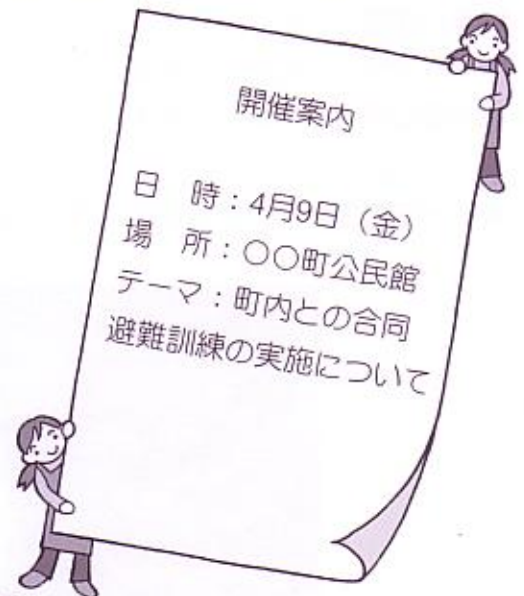 開催案内
日　時：4月9日（金）
場　所：○○町公民館
テーマ：町内との合同
避難訓練の実施について